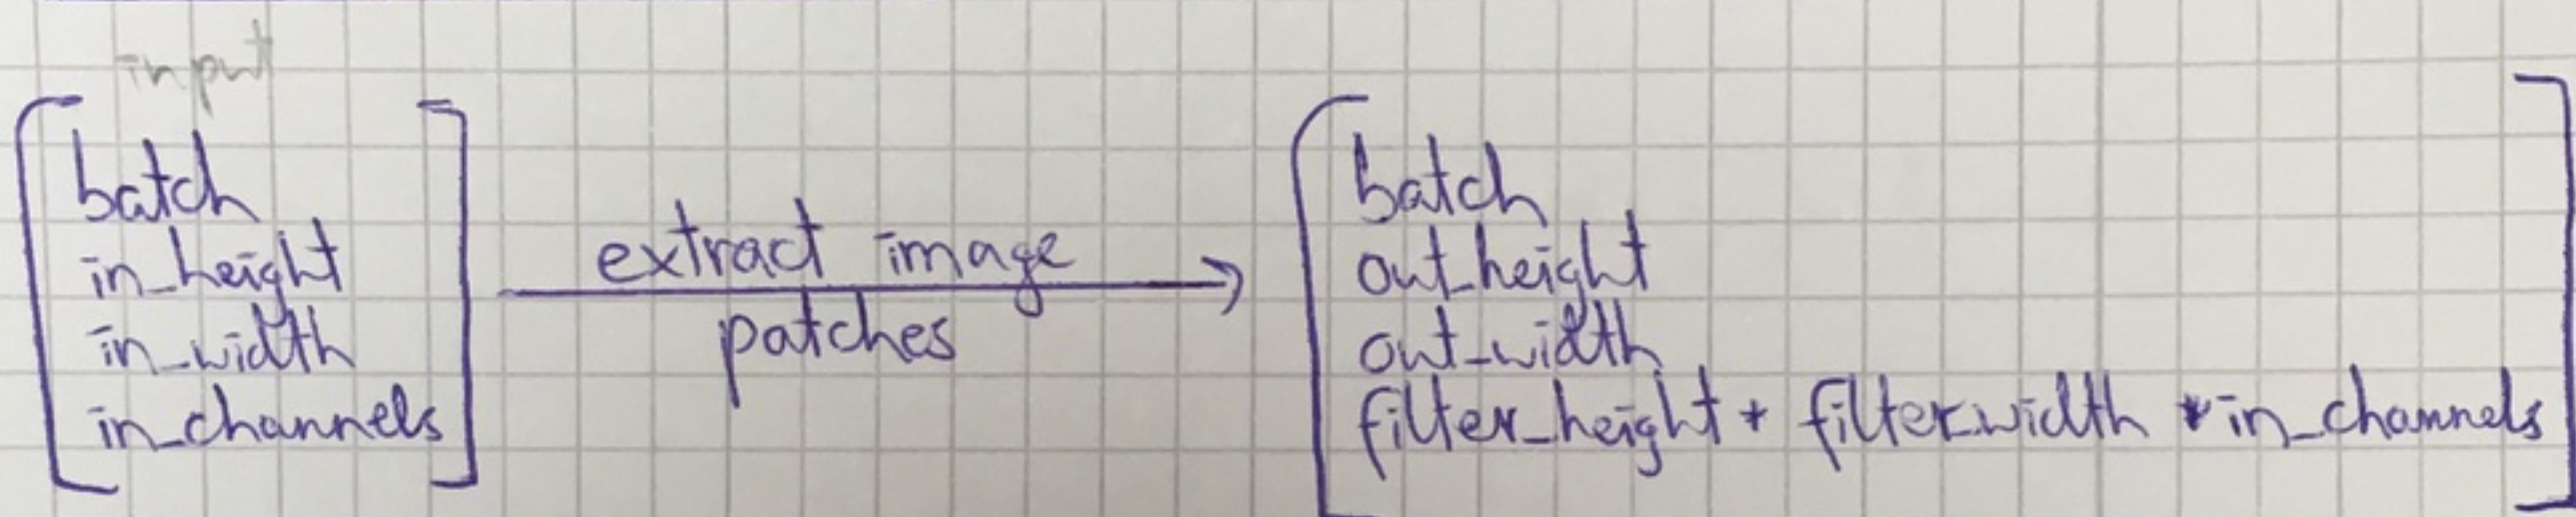 input
batch
in_height
in_width
in_channels
extract image
patches
batch
out_height
out_width
filter_height * filter_width * in_channels